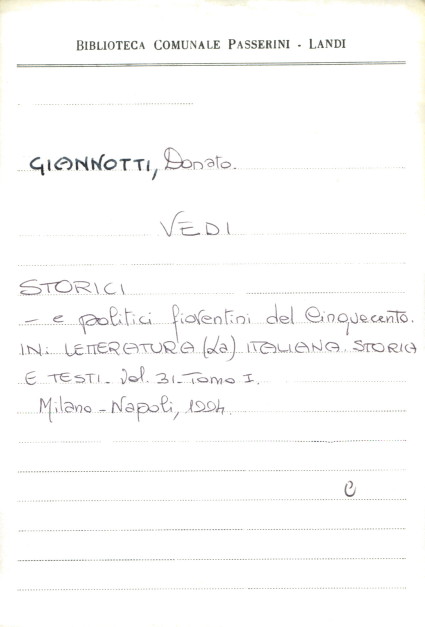 BIBLIOTECA COMUNALE PASSERINI - LANDI
GIANNOTTI, Donato.
VEDI
STORICI
- e politici fiorentini del Cinquecento.
IN: LETTERATURA (La) ITALIANA. STORIA
E TESTI. Vol. 31. Tomo I.
Milano - Napoli, 1994.
C